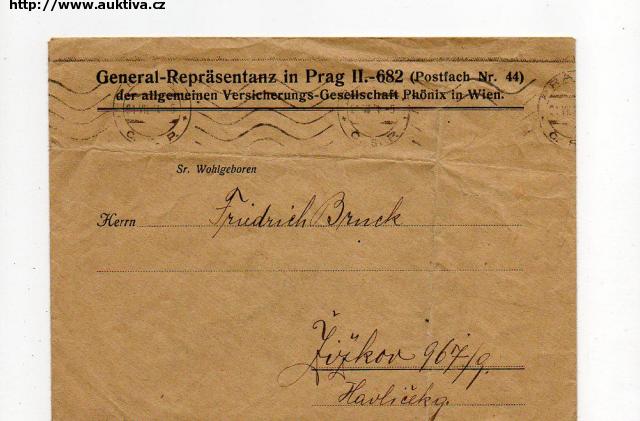 http://www.auktiva.cz
General-Repräsentanz in Prag II.-682 (Postfach Nr. 44)
der allgemeinen Versicherungs-Gesellschaft Phönix in Wien.
Sr. Wohlgeboren
Herrn Friedrich Bruck
Žižkov 967/9.
Havlíčekg.